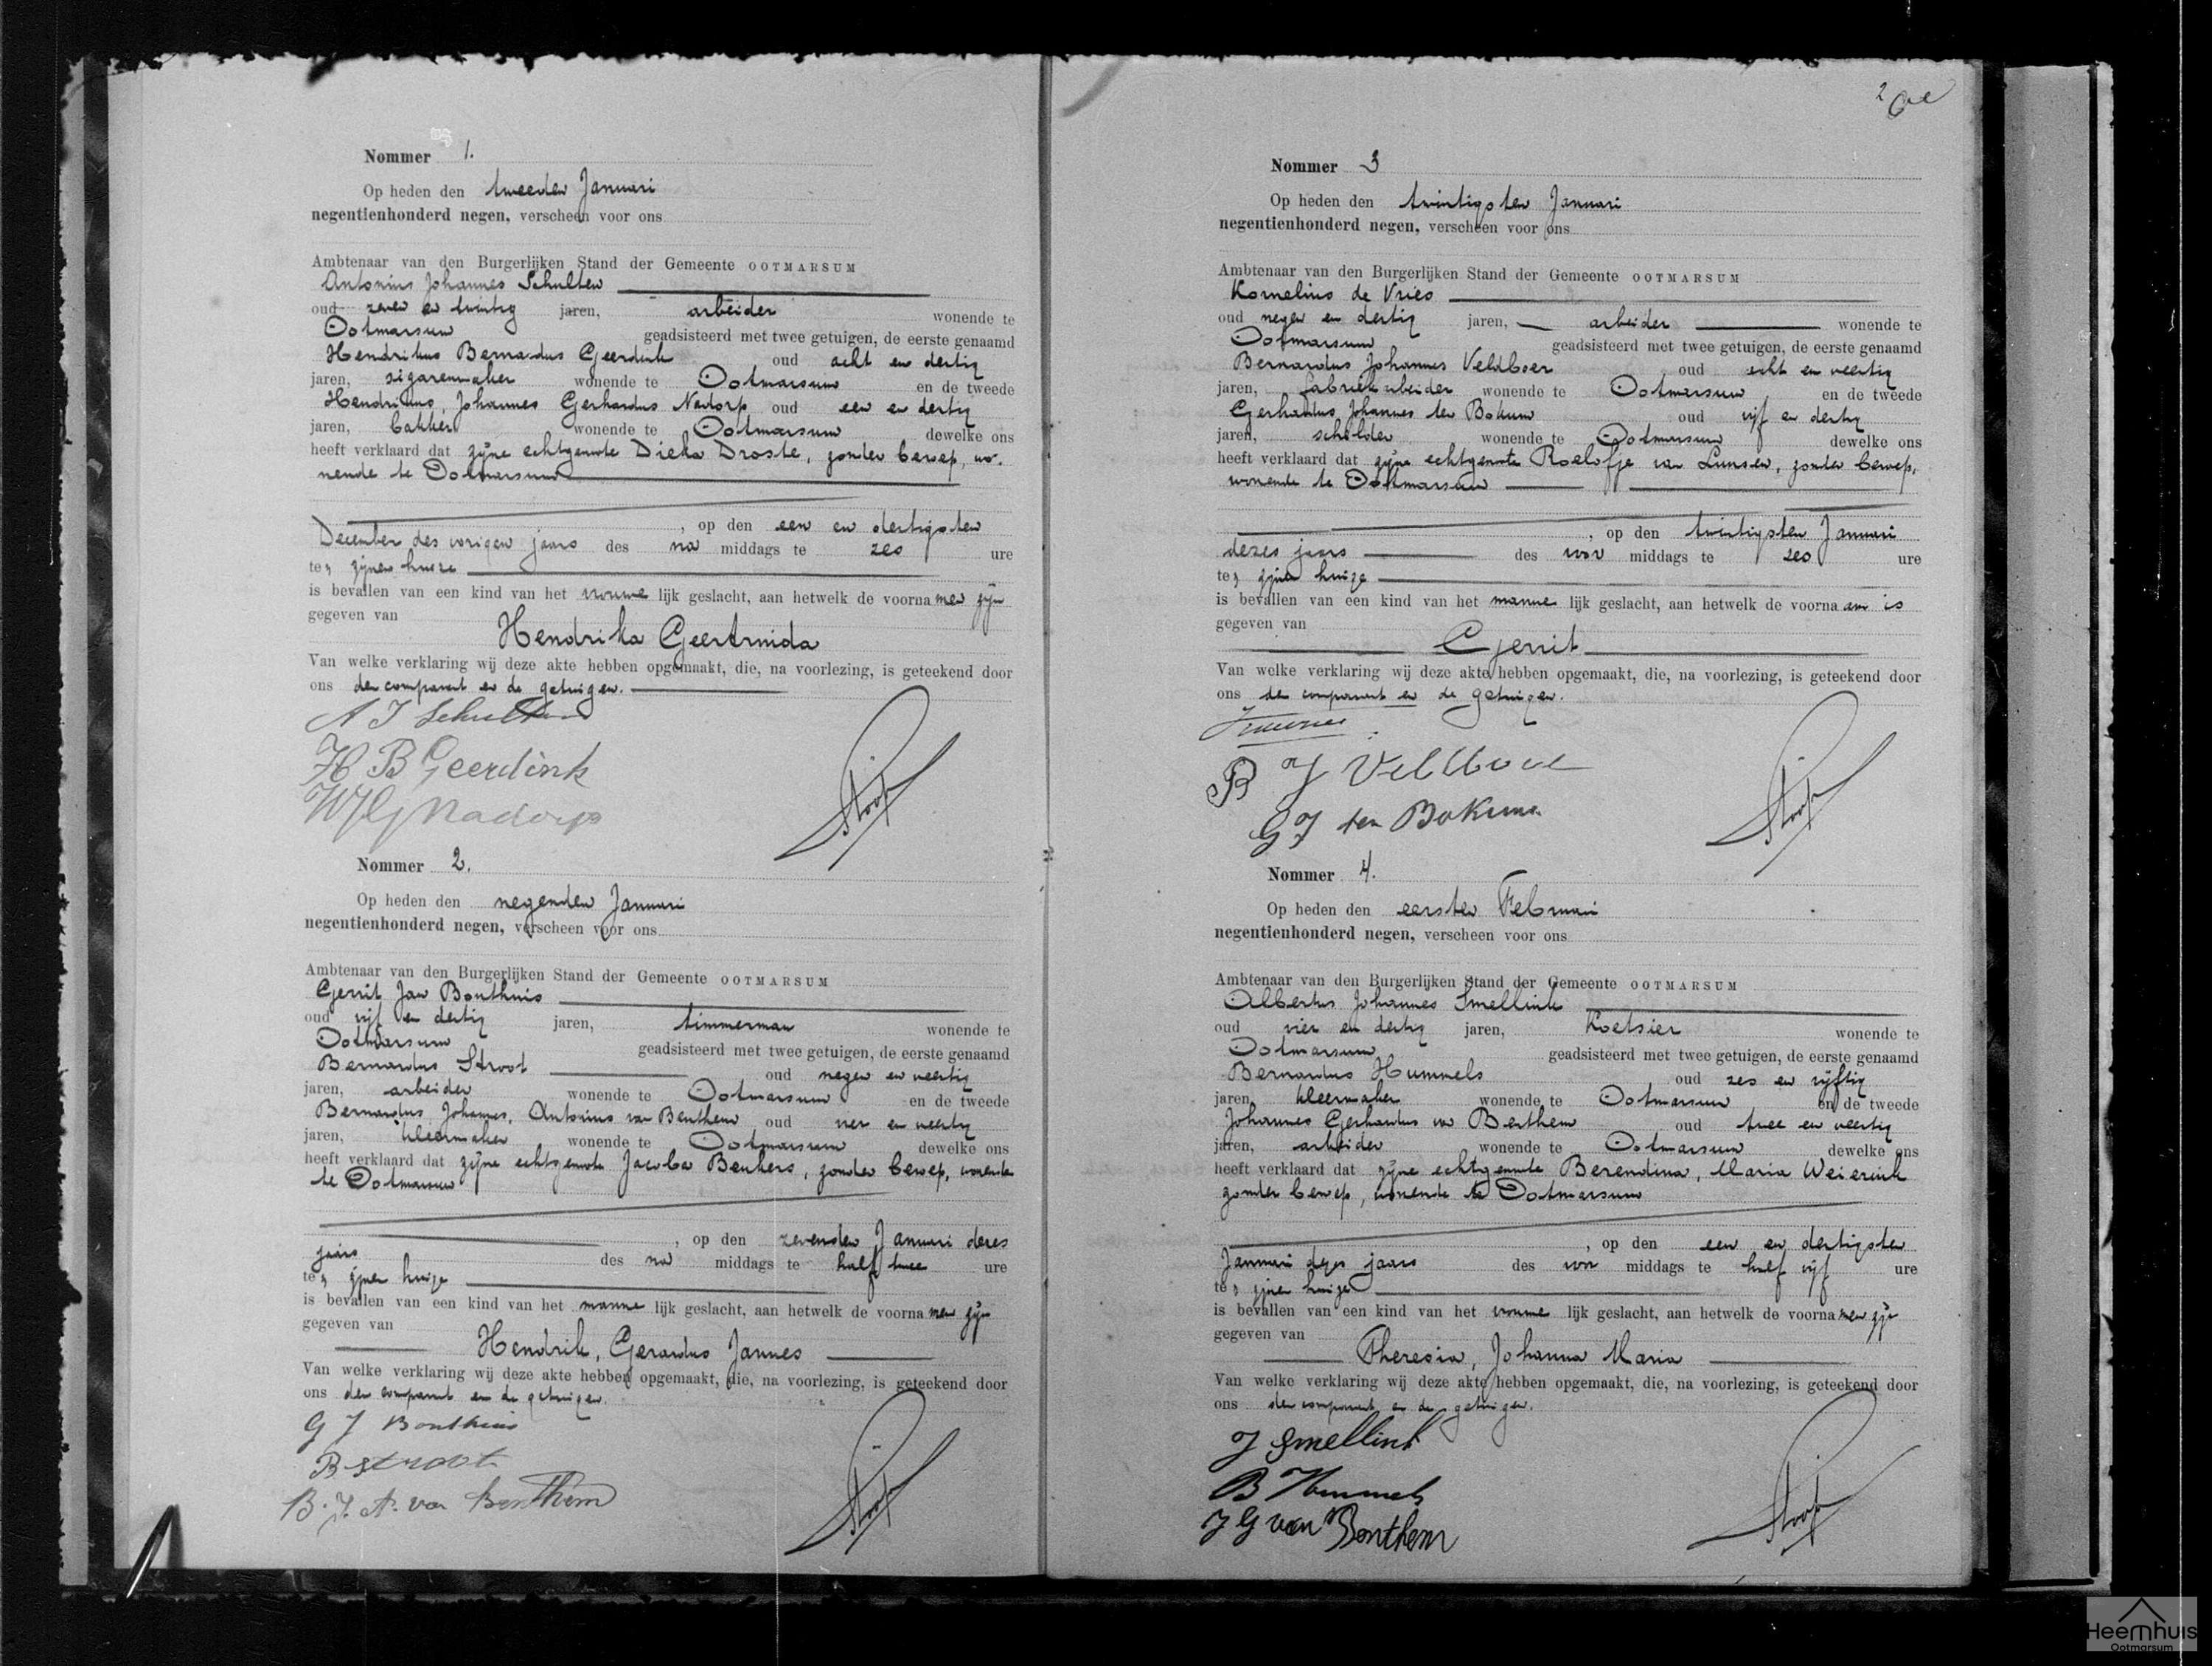 Nommer 1.
Op heden den tweeden Januari
negentienhonderd negen, verscheen voor ons
Ambtenaar van den Burgerlijken Stand der Gemeente OOTMARSUM
Antonius Johannes Schulten
oud zeven en twintig jaren, arbeider wonende te
Ootmarsum geadsisteerd met twee getuigen, de eerste genaamd
Hendrikus Bernardus Geerdink oud acht en dertig
jaren, sigarenmaker wonende te Ootmarsum en de tweede
Hendrikus, Johannes Gerhardus Nadorp oud een en dertig
jaren, bakker wonende te Ootmarsum dewelke ons
heeft verklaard dat zijne echtgenoote Dieka Droste, zonder beroep, wo-
nende te Ootmarsum
, op den een en dertigsten
December des vorigen jaars des na middags te zes ure
te, zijnen huize
is bevallen van een kind van het vrouwe lijk geslacht, aan hetwelk de voorna men zijn
gegeven van
Hendrika Geertruida
Van welke verklaring wij deze akte hebben opgemaakt, die, na voorlezing, is geteekend door
ons den comparant en de getuigen.
A J Schulten
H B Geerdink
HJG Nadorp
Stroop
Nommer 2.
Op heden den negenden Januari
negentienhonderd negen, verscheen voor ons
Ambtenaar van den Burgerlijken Stand der Gemeente OOTMARSUM
Gerrit Jan Bonthuis
oud vijf en dertig jaren, timmerman wonende te
Ootmarsum geadsisteerd met twee getuigen, de eerste genaamd
Bernardus Stroot oud negen en veertig
jaren, arbeider wonende te Ootmarsum en de tweede
Bernardus, Johannes, Antonius van Benthem oud vier en veertig
jaren, kleermaker wonende te Ootmarsum dewelke ons
heeft verklaard dat zijne echtgenoote Jacoba Benkers, zonder beroep, wonende
te Ootmarsum
, op den zevenden Januari dezes
jaars des na middags te half twee ure
te, zijnen huize
is bevallen van een kind van het manne lijk geslacht, aan hetwelk de voorna men zijn
gegeven van
Hendrik, Gerardus Jannes
Van welke verklaring wij deze akte hebben opgemaakt, die, na voorlezing, is geteekend door
ons den comparant en de getuigen.
G J Bonthuis
B Stroot
B. J. A. van Benthem
Stroop
2
Nommer 3
Op heden den twintigsten Januari
negentienhonderd negen, verscheen voor ons
Ambtenaar van den Burgerlijken Stand der Gemeente OOTMARSUM
Kornelius de Vries
oud negen en dertig jaren, arbeider wonende te
Ootmarsum geadsisteerd met twee getuigen, de eerste genaamd
Bernardus Johannes Veldboer oud acht en veertig
jaren, fabriekarbeider wonende te Ootmarsum en de tweede
Gerhardus Johannes ten Bokum oud vijf en dertig
jaren, schilder wonende te Ootmarsum dewelke ons
heeft verklaard dat zijne echtgenoote Roelofje van Lunsen, zonder beroep,
wonende te Ootmarsum
, op den twintigsten Januari
dezes jaars des voor middags te zes ure
te, zijnen huize
is bevallen van een kind van het manne lijk geslacht, aan hetwelk de voorna am is
gegeven van
Gerrit
Van welke verklaring wij deze akte hebben opgemaakt, die, na voorlezing, is geteekend door
ons den comparant en de getuigen.
B J Veldboer
G J ten Bokum
Stroop
Nommer 4.
Op heden den eersten Februari
negentienhonderd negen, verscheen voor ons
Ambtenaar van den Burgerlijken Stand der Gemeente OOTMARSUM
Albertus Johannes Smellink
oud vier en dertig jaren, Koetsier wonende te
Ootmarsum geadsisteerd met twee getuigen, de eerste genaamd
Bernardus Hummels oud zes en vijftig
jaren, kleermaker wonende te Ootmarsum en de tweede
Johannes Gerhardus van Benthem oud twee en veertig
jaren, arbeider wonende te Ootmarsum dewelke ons
heeft verklaard dat zijne echtgenoote Berendina, Maria Weierink
zonder beroep, wonende te Ootmarsum
, op den een en dertigsten
Januari dezes jaars des voor middags te half vijf ure
te, zijnen huize
is bevallen van een kind van het vrouwe lijk geslacht, aan hetwelk de voorna men zijn
gegeven van
Theresia, Johanna Maria
Van welke verklaring wij deze akte hebben opgemaakt, die, na voorlezing, is geteekend door
ons den comparant en de getuigen.
J Smellink
B Hummels
J G van Benthem
Stroop
Heemhuis
Ootmarsum